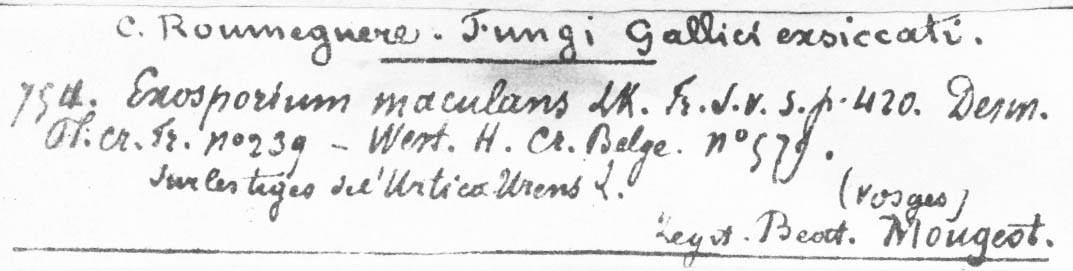 C. Roumeguere. Fungi Gallici exsiccati.
Exosporium maculans LK. Fr. S. v. S. p. 420. Desm.
Pl. Cr. Fr. no 239 – West. H. Cr. Belge. no 579.
Sur les tiges de l'Urtica Urens L.
(Vosges)
Legit. Beat. Mougeot.